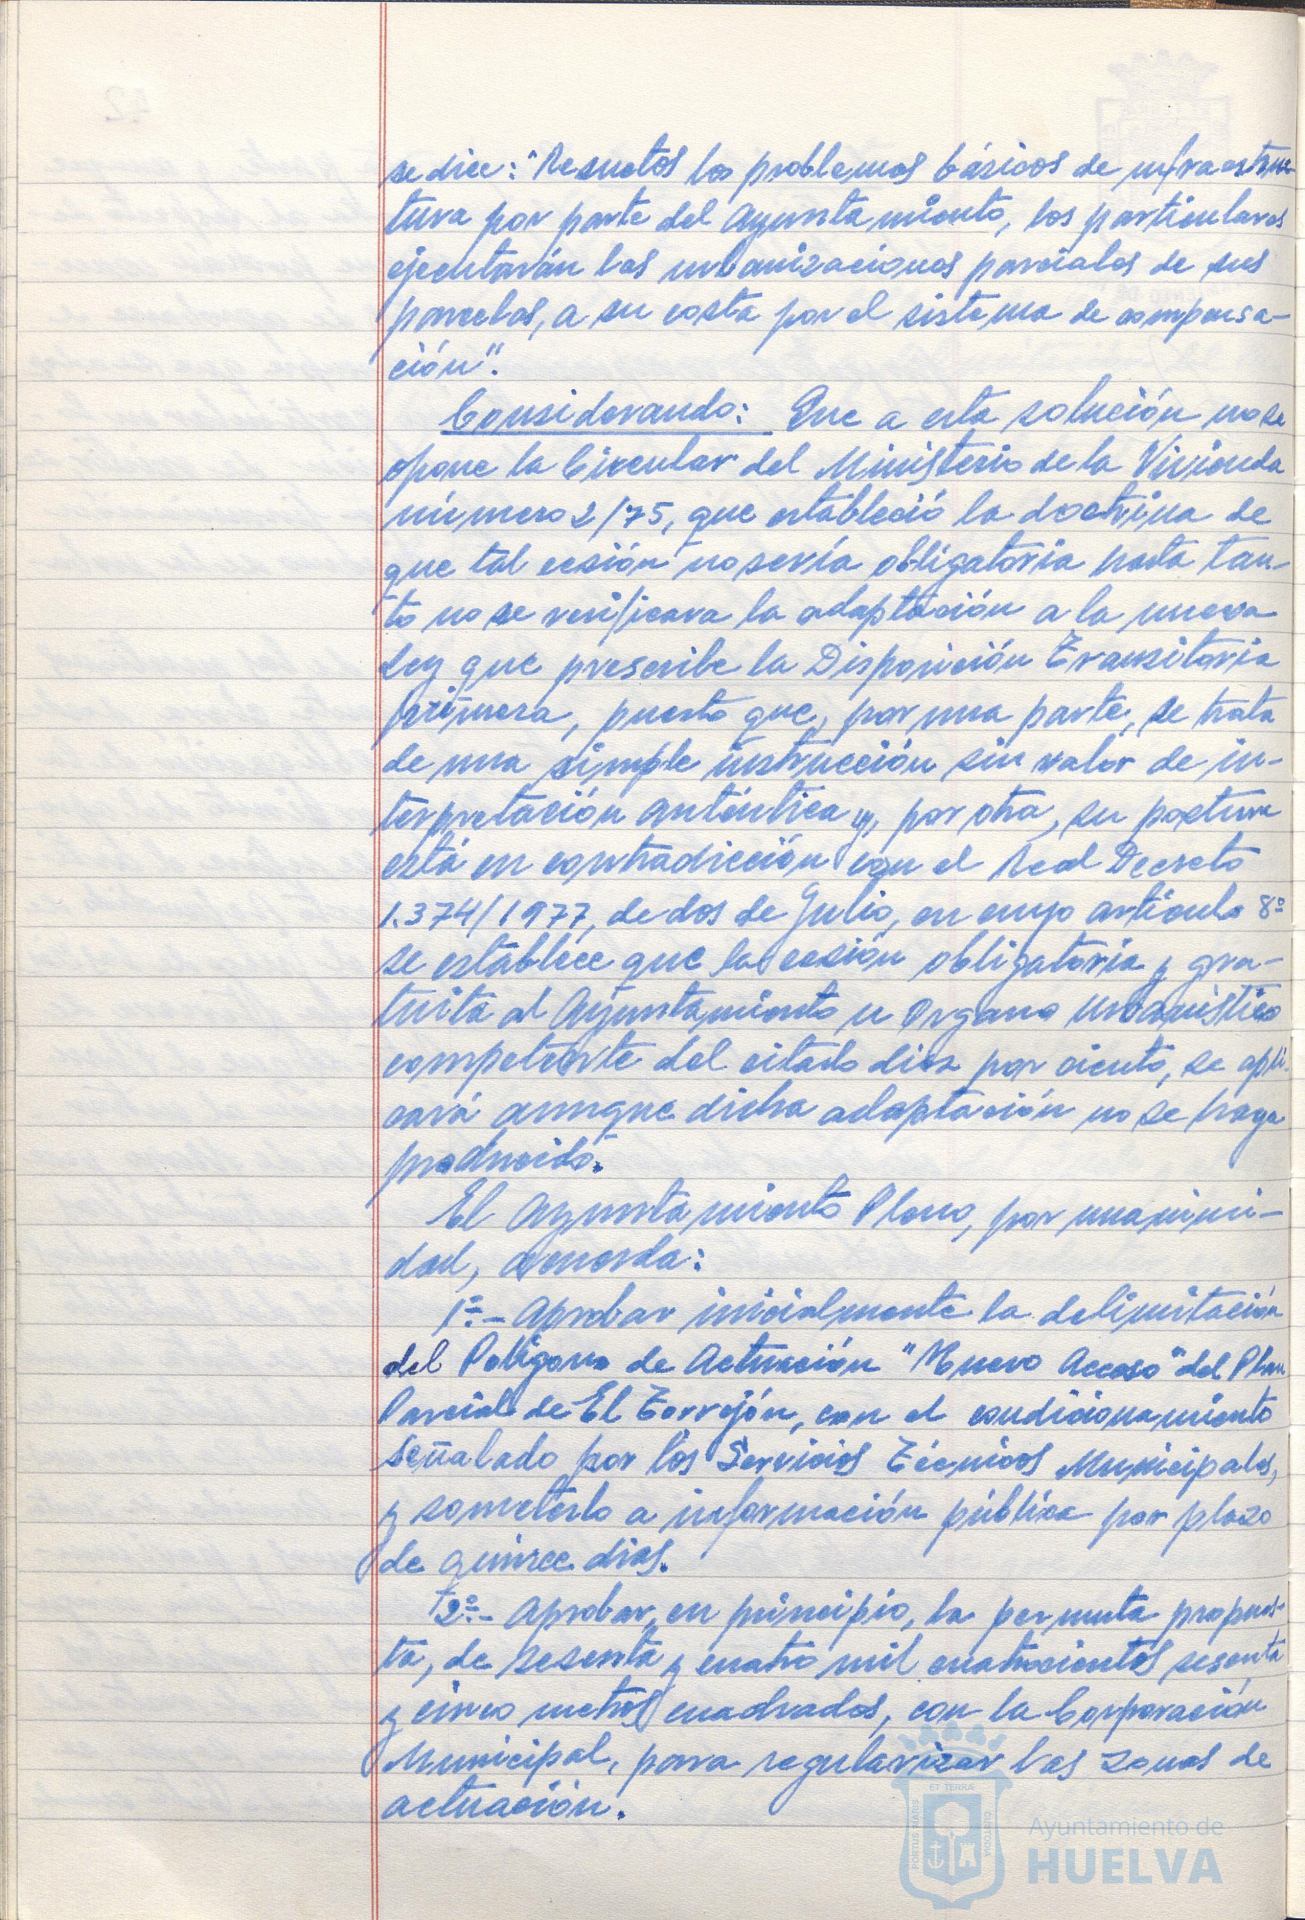 se dice: "Resueltos los problemas básicos de infraestruc
tura por parte del Ayuntamiento, los particulares
ejecutarán las urbanizaciones parciales de sus
parcelas, a su costa por el sistema de compensa-
ción".
Considerando: Que a esta solución no se
opone la Circular del Ministerio de la Vivienda
número 2/75, que estableció la doctrina de
que tal cesión no sería obligatoria hasta tan-
to no se verificara la adaptación a la nueva
Ley que prescribe la Disposición Transitoria
primera, puesto que, por una parte, se trata
de una simple instrucción sin valor de in-
terpretación auténtica y, por otra, su postura
está en contradicción con el Real Decreto
1.374/1977, de dos de Julio, en cuyo artículo 8º
se establece que la cesión obligatoria y gra-
tuita al Ayuntamiento u Organo urbanístico
competente del citado diez por ciento, se apli-
cará aunque dicha adaptación no se haya
producido.
El Ayuntamiento Pleno, por unanimi-
dad, acuerda:
1º.- Aprobar inicialmente la delimitación
del Polígono de Actuación "Nuevo Acceso" del Plan
Parcial de El Torrejón, con el condicionamiento
señalado por los Servicios Técnicos Municipales,
y someterlo a información pública por plazo
de quince dias.
2º.- Aprobar, en principio, la permuta propues-
ta, de sesenta y cuatro mil cuatrocientos sesenta
y cinco metros cuadrados, con la Corporación
Municipal, para regularizar las zonas de
actuación.
ET TERRÆ
PORTUS MARIS
CUSTODIA
Ayuntamiento de
HUELVA